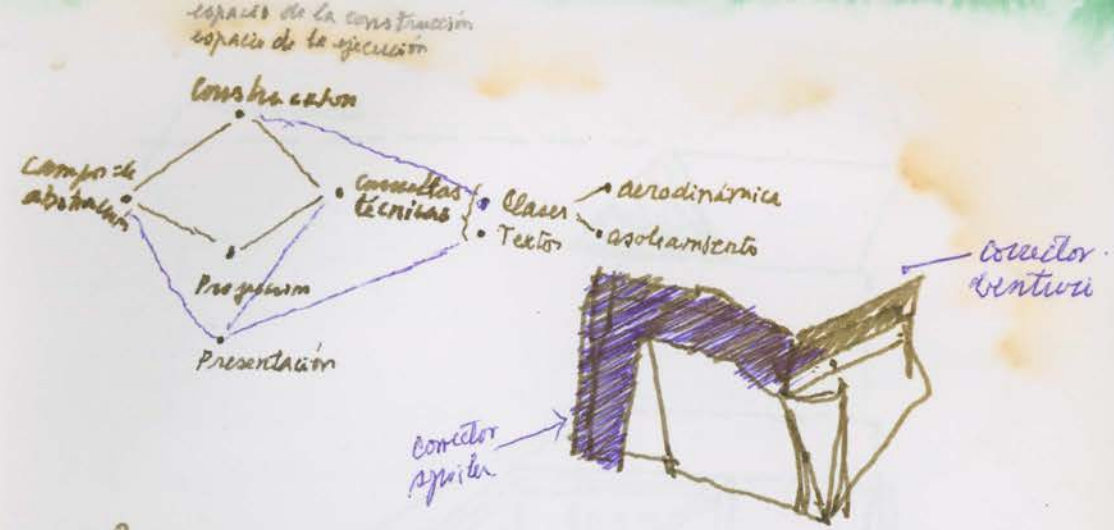 espacio de la construcción
espacio de la ejecución
Construcción
Campos de
abstracción
Consultas
técnicas
Clases
Textos
aerodinámica
asoleamiento
Proyección
Presentación
corrector
venturi
corrector
spoiler